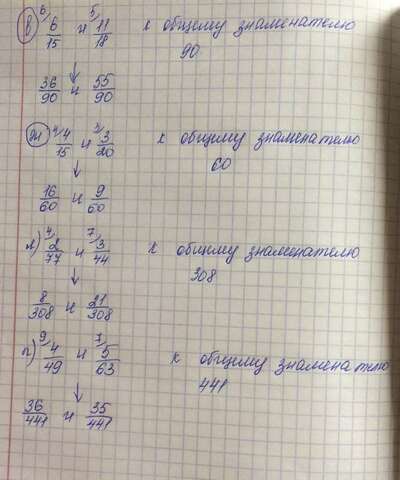 в) ⁶/ 6/15 и ⁵/ 11/18 к общему знаменателю
90
36/90 и 55/90
ж) ⁴/ 4/15 и ³/ 3/20 к общему знаменателю
60
16/60 и 9/60
л) ⁴/ 2/77 и ⁷/ 3/44 к общему знаменателю
308
8/308 и 21/308
п) ⁹/ 4/49 и ⁷/ 5/63 к общему знаменателю
441
36/441 и 35/441